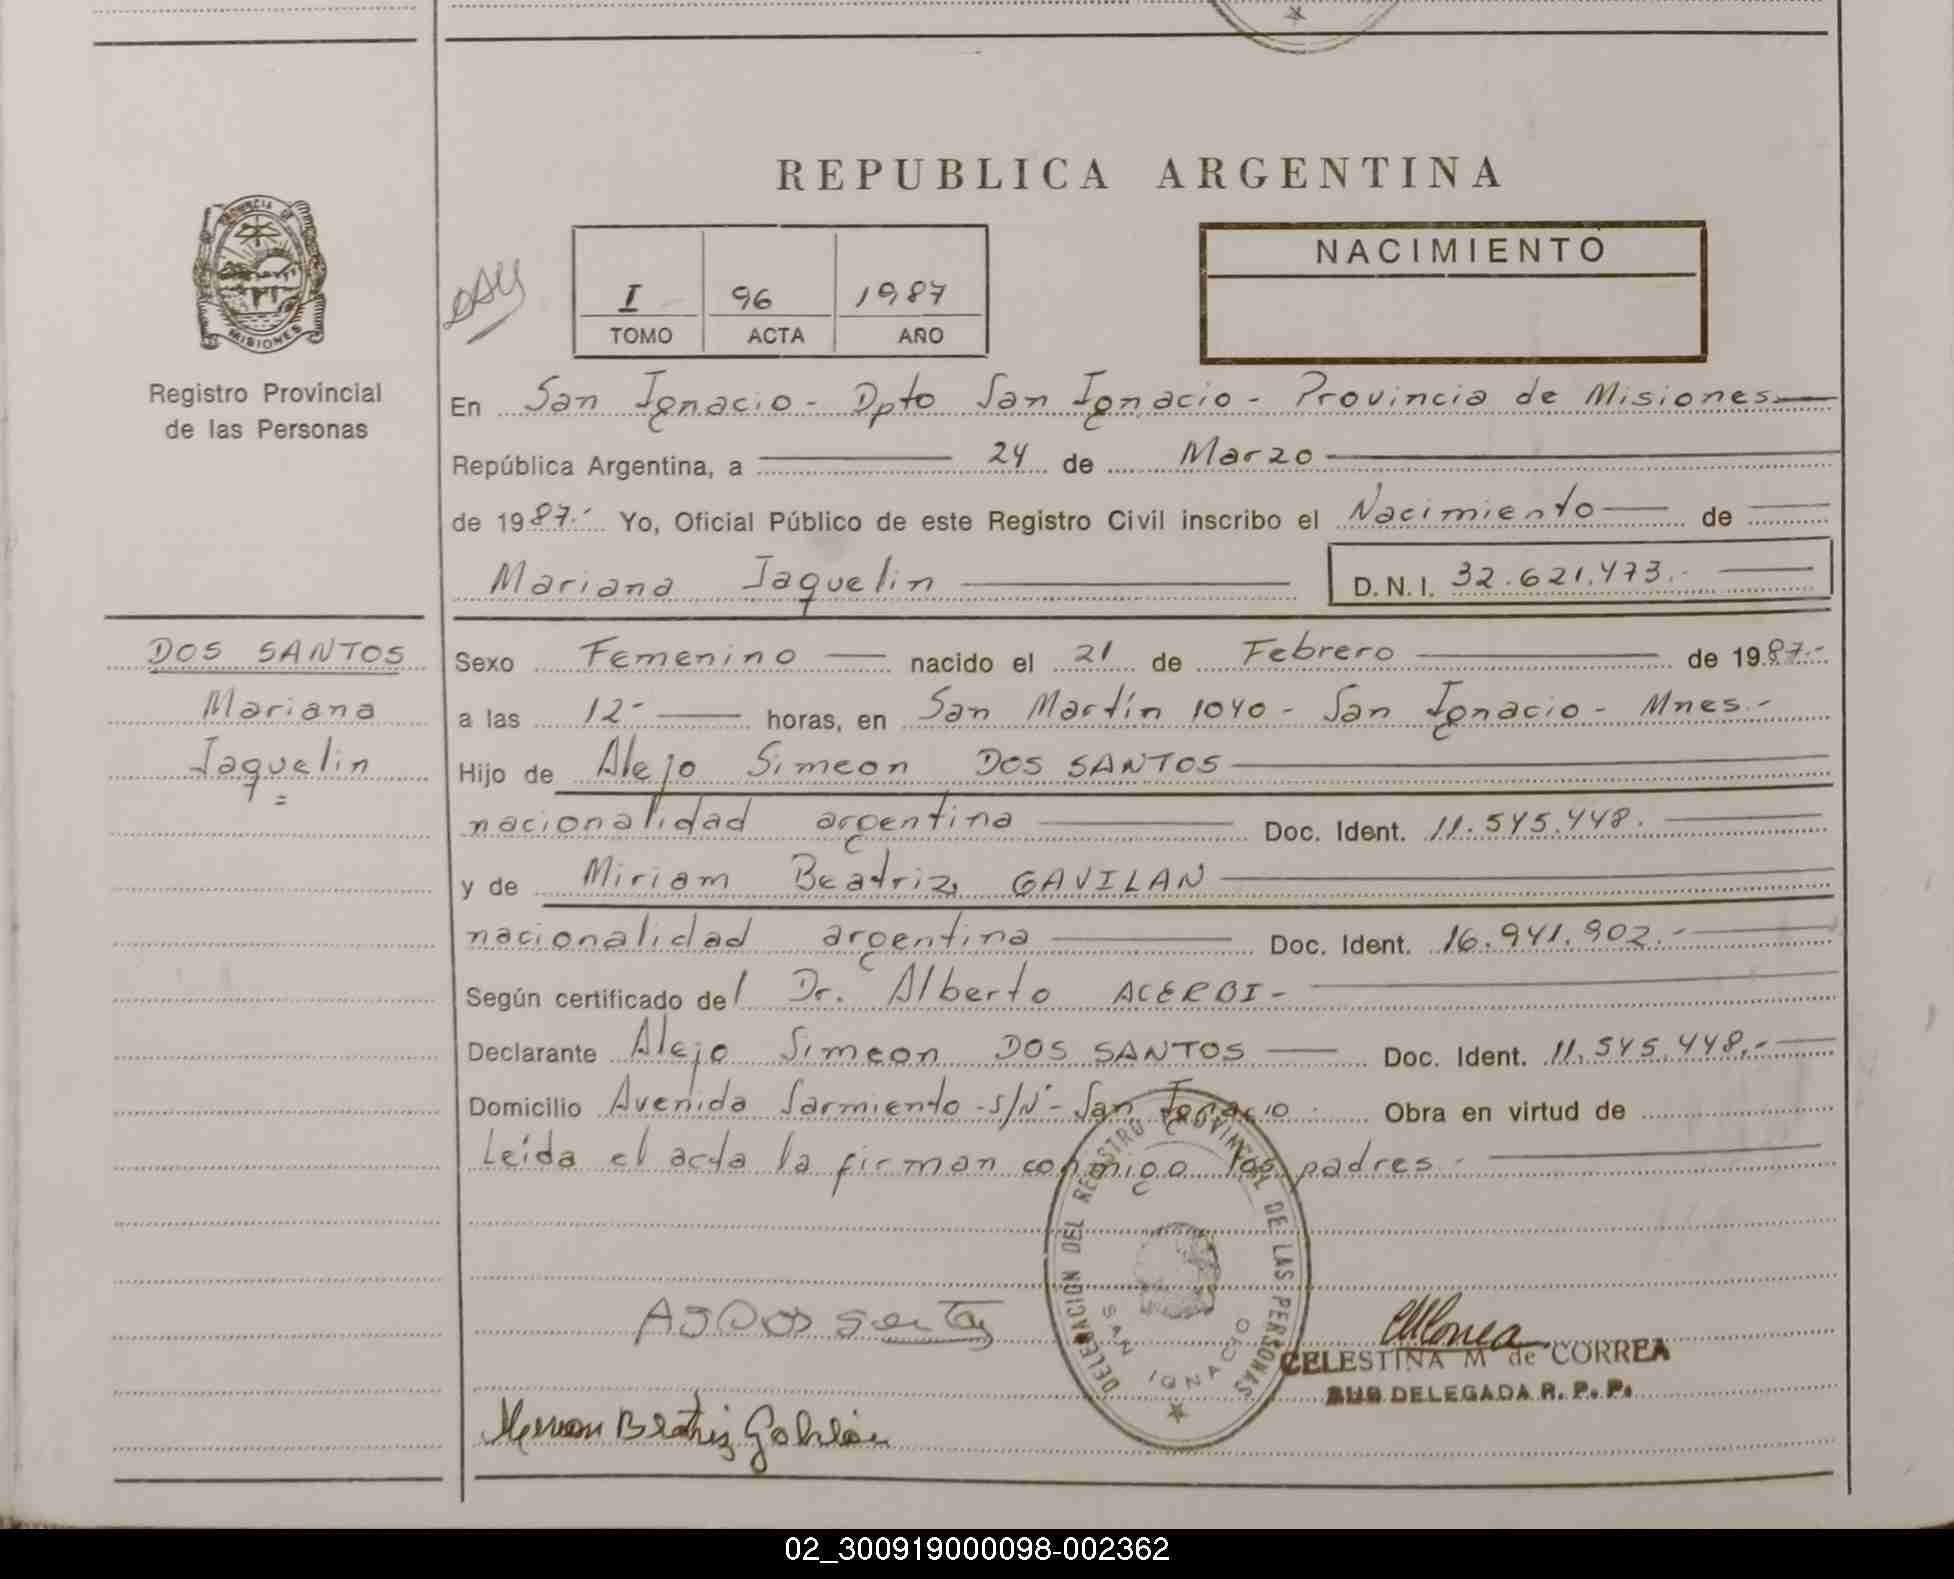 REPUBLICA ARGENTINA
PROVINCIA DE
MISIONES
Registro Provincial
de las Personas
I 96 1987
TOMO ACTA AÑO
NACIMIENTO
En San Ignacio - Dpto San Ignacio - Provincia de Misiones
República Argentina, a 24 de Marzo
de 1987.- Yo, Oficial Público de este Registro Civil inscribo el Nacimiento de
Mariana Jaquelin D.N.I. 32.621.473.-
DOS SANTOS
Mariana
Jaquelin
Sexo Femenino nacido el 21 de Febrero de 1987.-
a las 12- horas, en San Martín 1040 - San Ignacio - Mnes.-
Hijo de Alejo Simeon DOS SANTOS
nacionalidad argentina Doc. Ident. 11.545.448.
y de Miriam Beatriz GAVILAN
nacionalidad argentina Doc. Ident. 16.941.902.-
Según certificado del Dr. Alberto ACERBI -
Declarante Alejo Simeon DOS SANTOS Doc. Ident. 11.545.448.-
Domicilio Avenida Sarmiento -S/N°- San Ignacio Obra en virtud de
Leída el acta la firman conmigo los padres.-
DELEGACION DEL REGISTRO PROVINCIAL DE LAS PERSONAS
SAN IGNACIO
CELESTINA M de CORREA
SUB DELEGADA R. P. P.
Beatriz
02_300919000098-002362